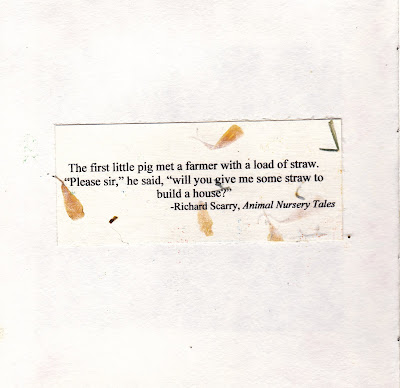 The first little pig met a farmer with a load of straw.
“Please sir,” he said, “will you give me some straw to
build a house?”
-Richard Scarry, Animal Nursery Tales